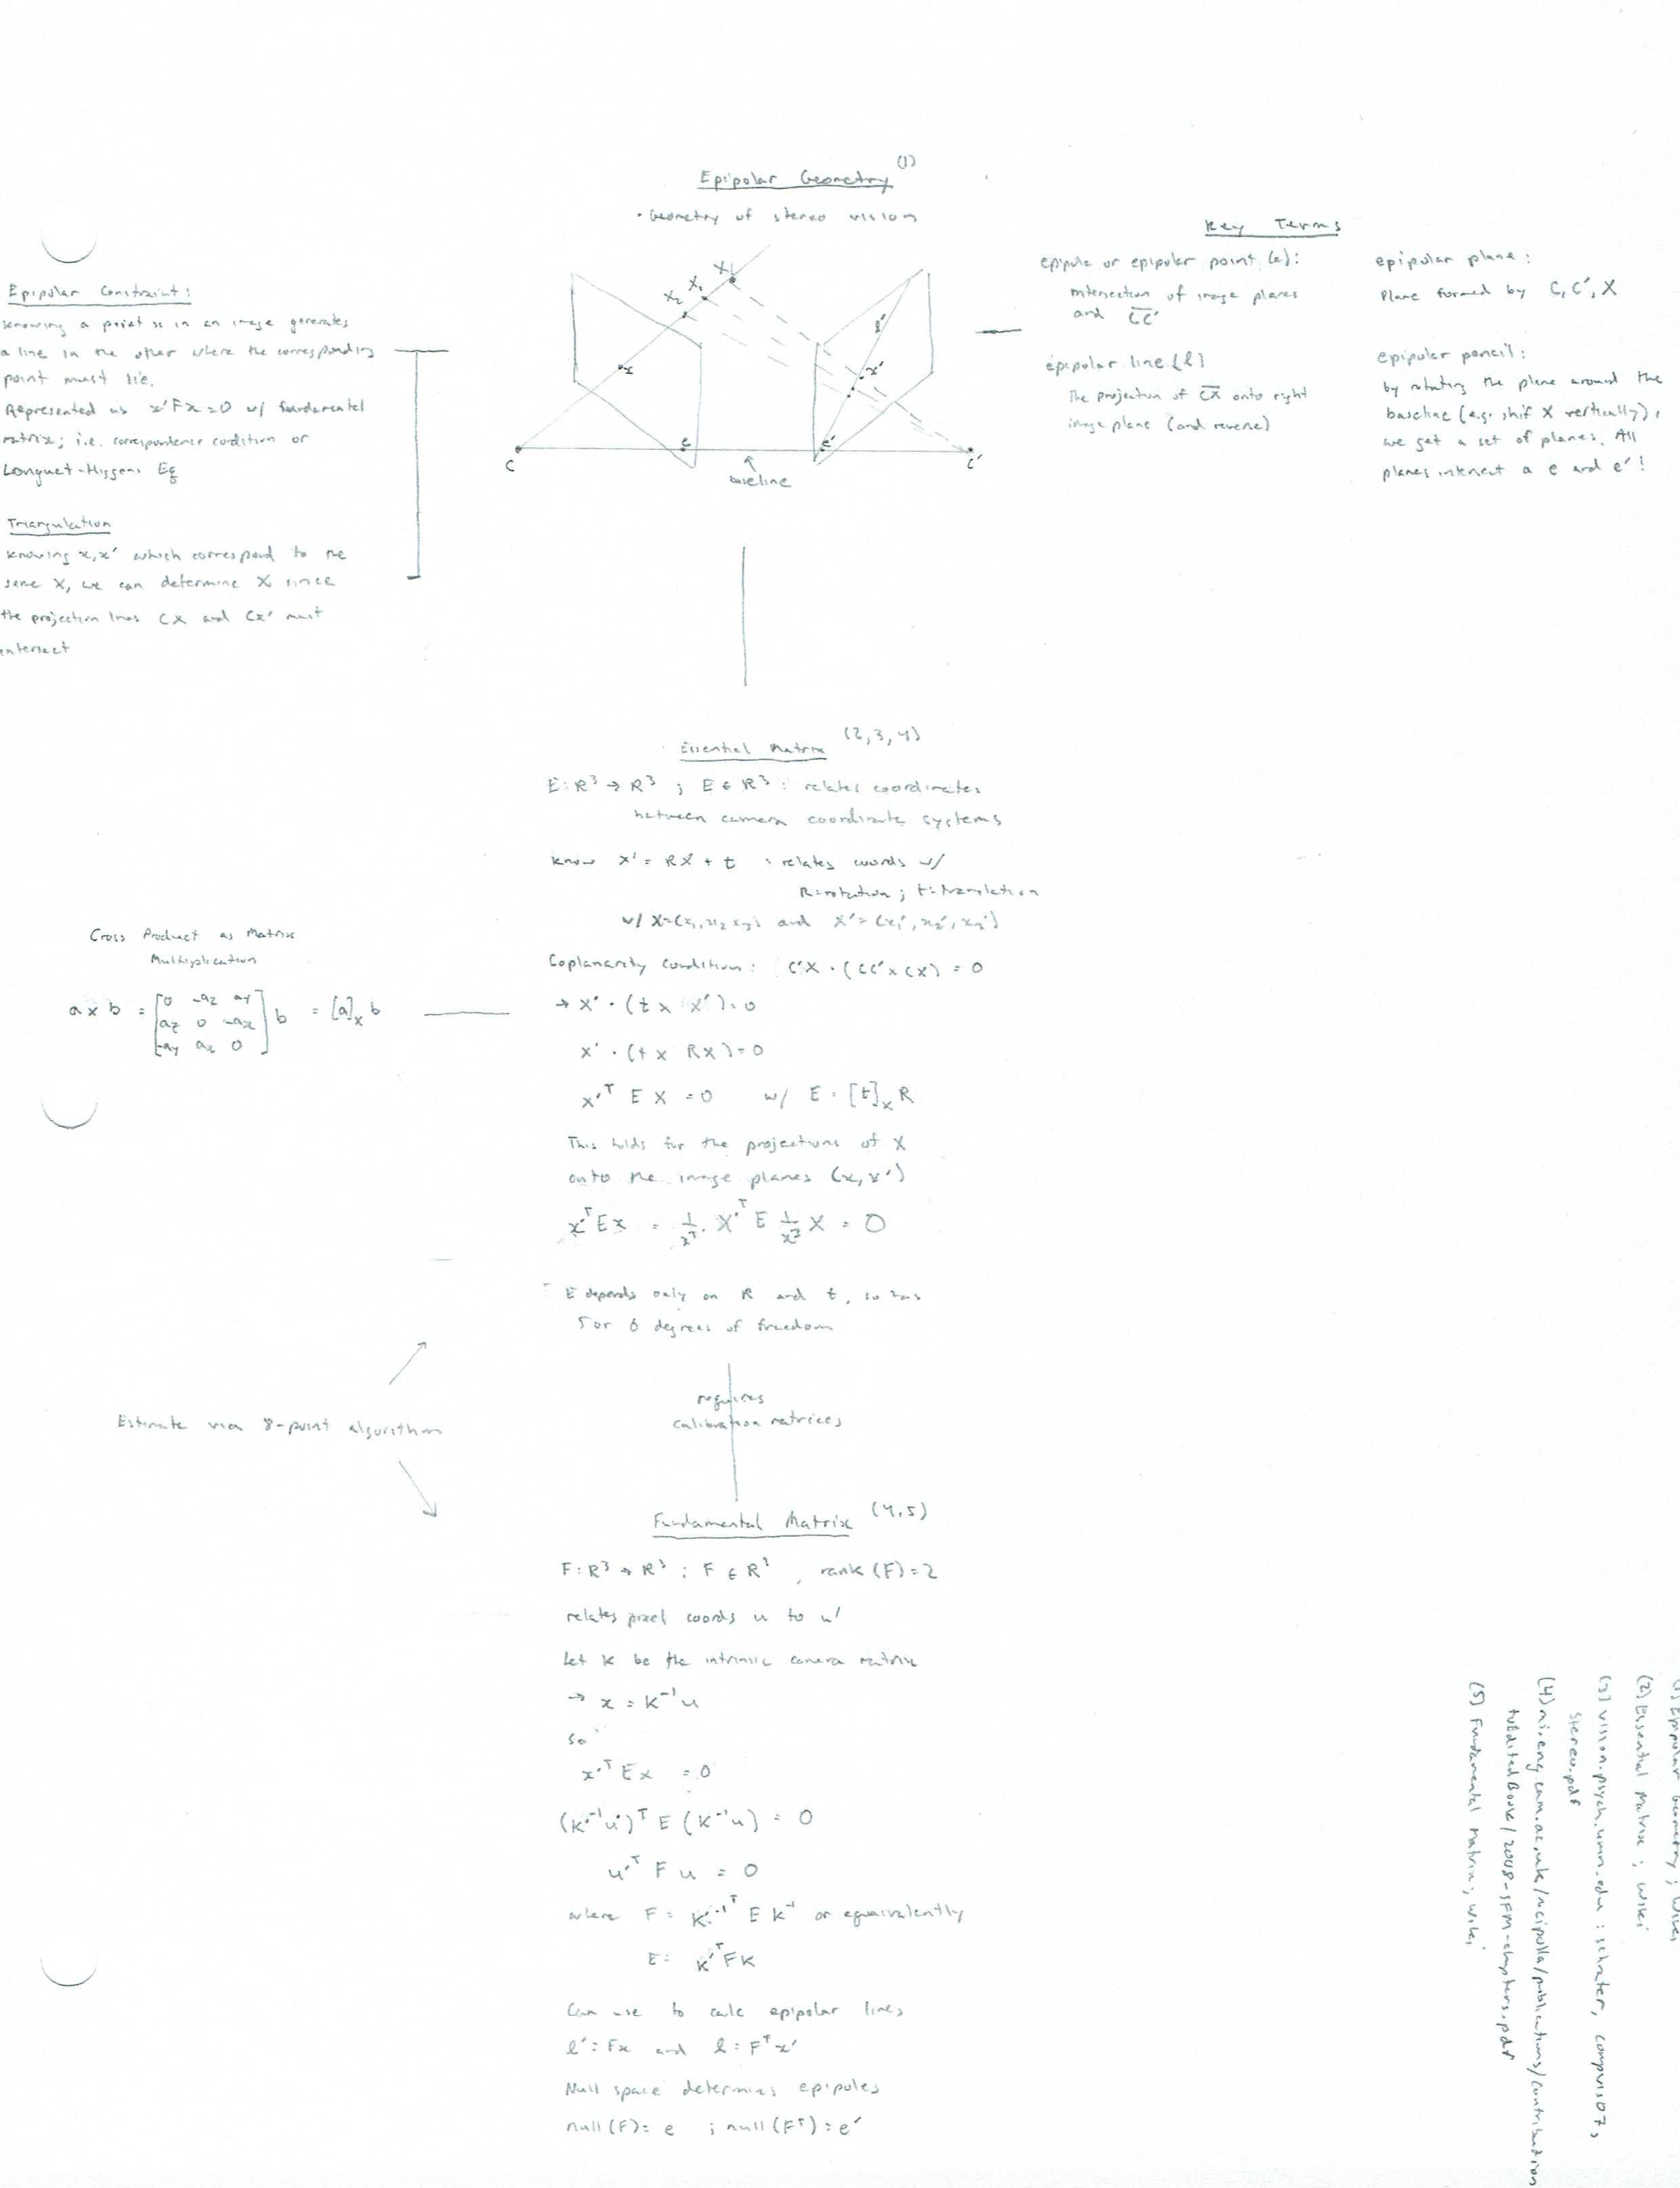 Epipolar Geometry (1)
• Geometry of stereo vision
Epipolar Constraint:
Knowing a point x in an image generates
a line in the other where the corresponding
point must lie.
Represented as x'Fx=0 w/ fundamental
matrix; i.e. correspondence condition or
Longuet-Higgens Eq
Triangulation
Knowing x,x' which correspond to the
same X, we can determine X since
the projection lines CX and CX' must
intersect
X
X₁
X₂
x
l'
x'
e
e'
C
C'
baseline
Key Terms
epipole or epipolar point (e):
intersection of image planes
and CC'
epipolar line (l)
The projection of CX onto right
image plane (and reverse)
epipolar plane:
Plane formed by C, C', X
epipolar pencil:
by rotating the plane around the
baseline (e.g. shif X vertically),
we get a set of planes. All
planes intersect a e and e'!
Essential Matrix (2,3,4)
E: R³ → R³ ; E ∈ R³ : relates coordinates
between camera coordinate systems
know X' = RX + t : relates coords w/
R=rotation; t=translation
w/ X=(x₁,x₂,x₃) and X'=(x₁',x₂',x₃')
Coplanarity Condition: C'X · (CC' x CX) = 0
→ X' · (t x X') = 0
X' · (t x RX) = 0
X'ᵀ E X = 0 w/ E = [t]ₓ R
This holds for the projections of X
onto the image planes (x,x')
E depends only on R and t, so has
5 or 6 degrees of freedom
Cross Product as Matrix
Multiplication
a x b = [0 -az ay
az 0 -ax
-ay ax 0] b = [a]ₓ b
Estimate via 8-point algorithm
requires
calibration matrices
Fundamental Matrix (4,5)
F: R³ → R³ ; F ∈ R³ , rank(F)=2
relates pixel coords u to u'
Let K be the intrinsic camera matrix
→ x = K⁻¹u
so
x'ᵀ E x = 0
(K'⁻¹u')ᵀ E (K⁻¹u) = 0
u'ᵀ F u = 0
where F = K'⁻¹ᵀ E K⁻¹ or equivalently
E = K'ᵀFK
Can use to calc epipolar lines
l' = Fx and l = Fᵀx'
Null space determines epipoles
null(F) = e ; null(Fᵀ) = e'
(1) Epipolar Geometry ; wiki
(2) Essential Matrix ; wiki
(3) vision.psych.umn.edu : schrater, compvis07,
stereo.pdf
(4) mi.eng.cam.ac.uk/~cipolla/publications/contribution
toEditedBook/2008-SFM-chapters.pdf
(5) Fundamental matrix ; wiki